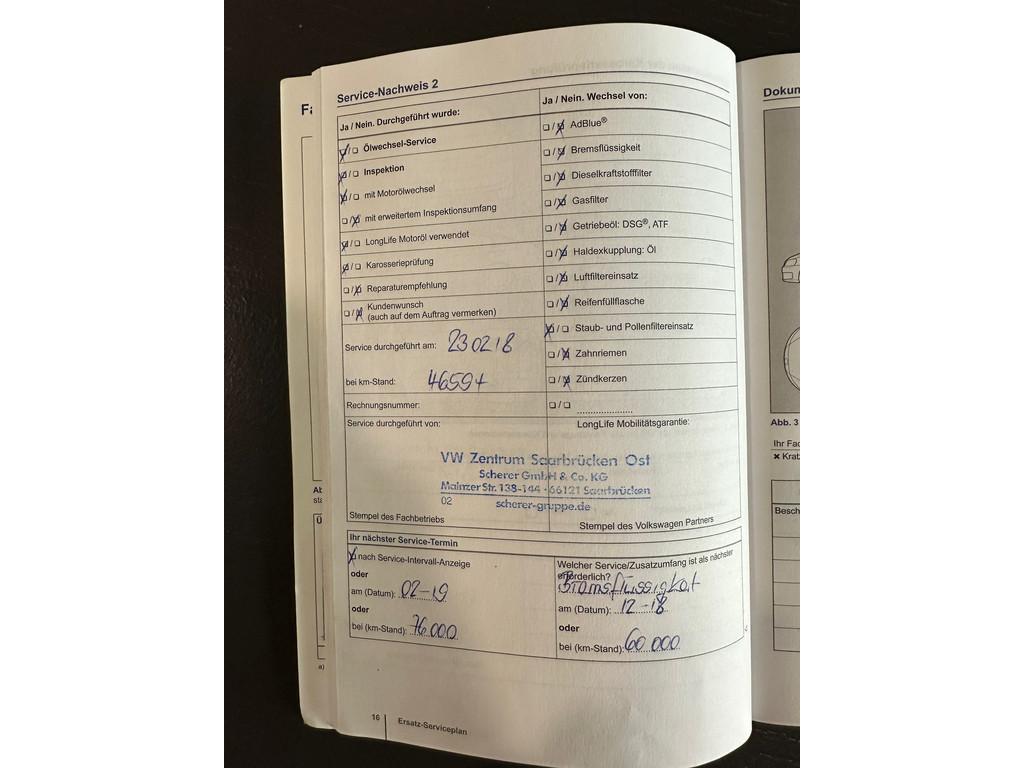 Service-Nachweis 2
Ja / Nein. Durchgeführt wurde:
☒/☐ Ölwechsel-Service
☒/☐ Inspektion
☒/☐ mit Motorölwechsel
☐/☒ mit erweitertem Inspektionsumfang
☒/☐ LongLife Motoröl verwendet
☒/☐ Karosserieprüfung
☐/☒ Reparaturempfehlung
☐/☒ Kundenwunsch
(auch auf dem Auftrag vermerken)
Service durchgeführt am: 230218
bei km-Stand: 46594
Rechnungsnummer:
Service durchgeführt von:
Ja / Nein. Wechsel von:
☐/☒ AdBlue®
☐/☒ Bremsflüssigkeit
☐/☒ Dieselkraftstofffilter
☐/☒ Gasfilter
☐/☒ Getriebeöl: DSG®, ATF
☐/☒ Haldexkupplung: Öl
☐/☒ Luftfiltereinsatz
☐/☒ Reifenfüllflasche
☒/☐ Staub- und Pollenfiltereinsatz
☐/☒ Zahnriemen
☐/☒ Zündkerzen
☐/☐ ......................
LongLife Mobilitätsgarantie:
VW Zentrum Saarbrücken Ost
Scherer GmbH & Co. KG
Mainzer Str. 138-144 · 66121 Saarbrücken
02 scherer-gruppe.de
Stempel des Fachbetriebs
Stempel des Volkswagen Partners
Ihr nächster Service-Termin
☒ nach Service-Intervall-Anzeige
oder
am (Datum): 02-19
oder
bei (km-Stand): 76000
Welcher Service/Zusatzumfang ist als nächster
erforderlich?
Bremsflüssigkeit
am (Datum): 12-18
oder
bei (km-Stand): 60 000
16 Ersatz-Serviceplan
Dokum
Abb. 3
Ihr Fac
× Krat
Besch
a)